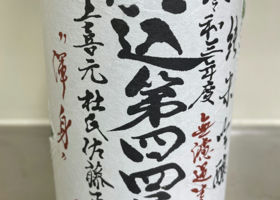 純米吟醸
令和三年度
無濾過生
込第四四
上喜元 杜氏佐藤
〝渾身〟